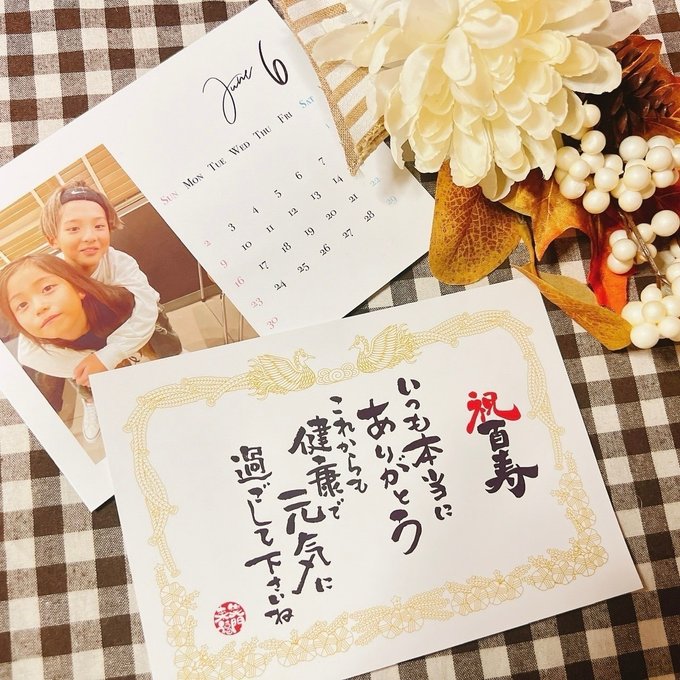 June 6
SUN MON TUE WED THU FRI SAT
1
2 3 4 5 6 7
9 10 11 12 13 14 15
16 17 18 19 20 21 22
23 24 25 26 27 28 29
30
祝百寿
いつも本当に
ありがとう
これからも
健康で元気に
過ごして下さいね